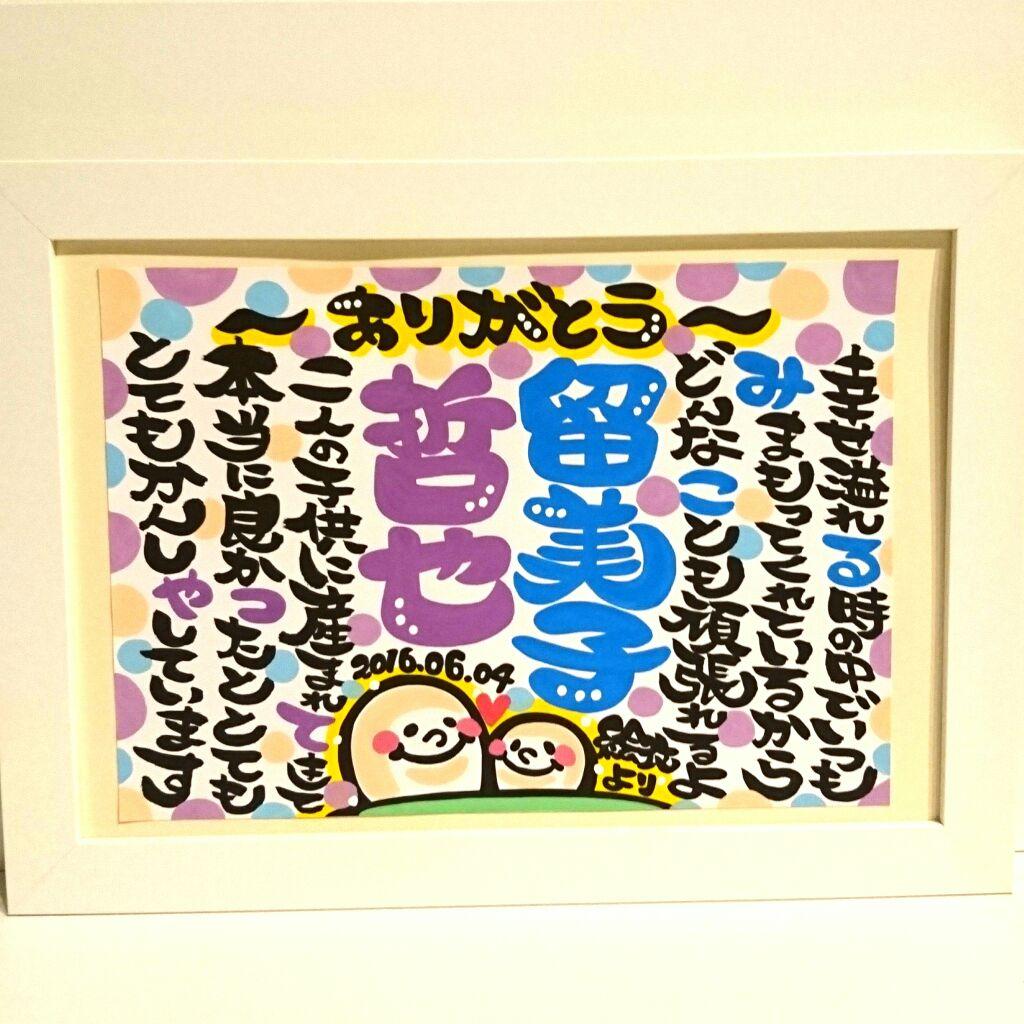 〜ありがとう〜
幸せ溢れる時の中でいつも
みまもってくれているから
どんなことも頑張れるよ
留美子
哲也
二人の子供に産まれてきて
本当に良かったととても
とてもかんしゃしています
2016.06.04
より